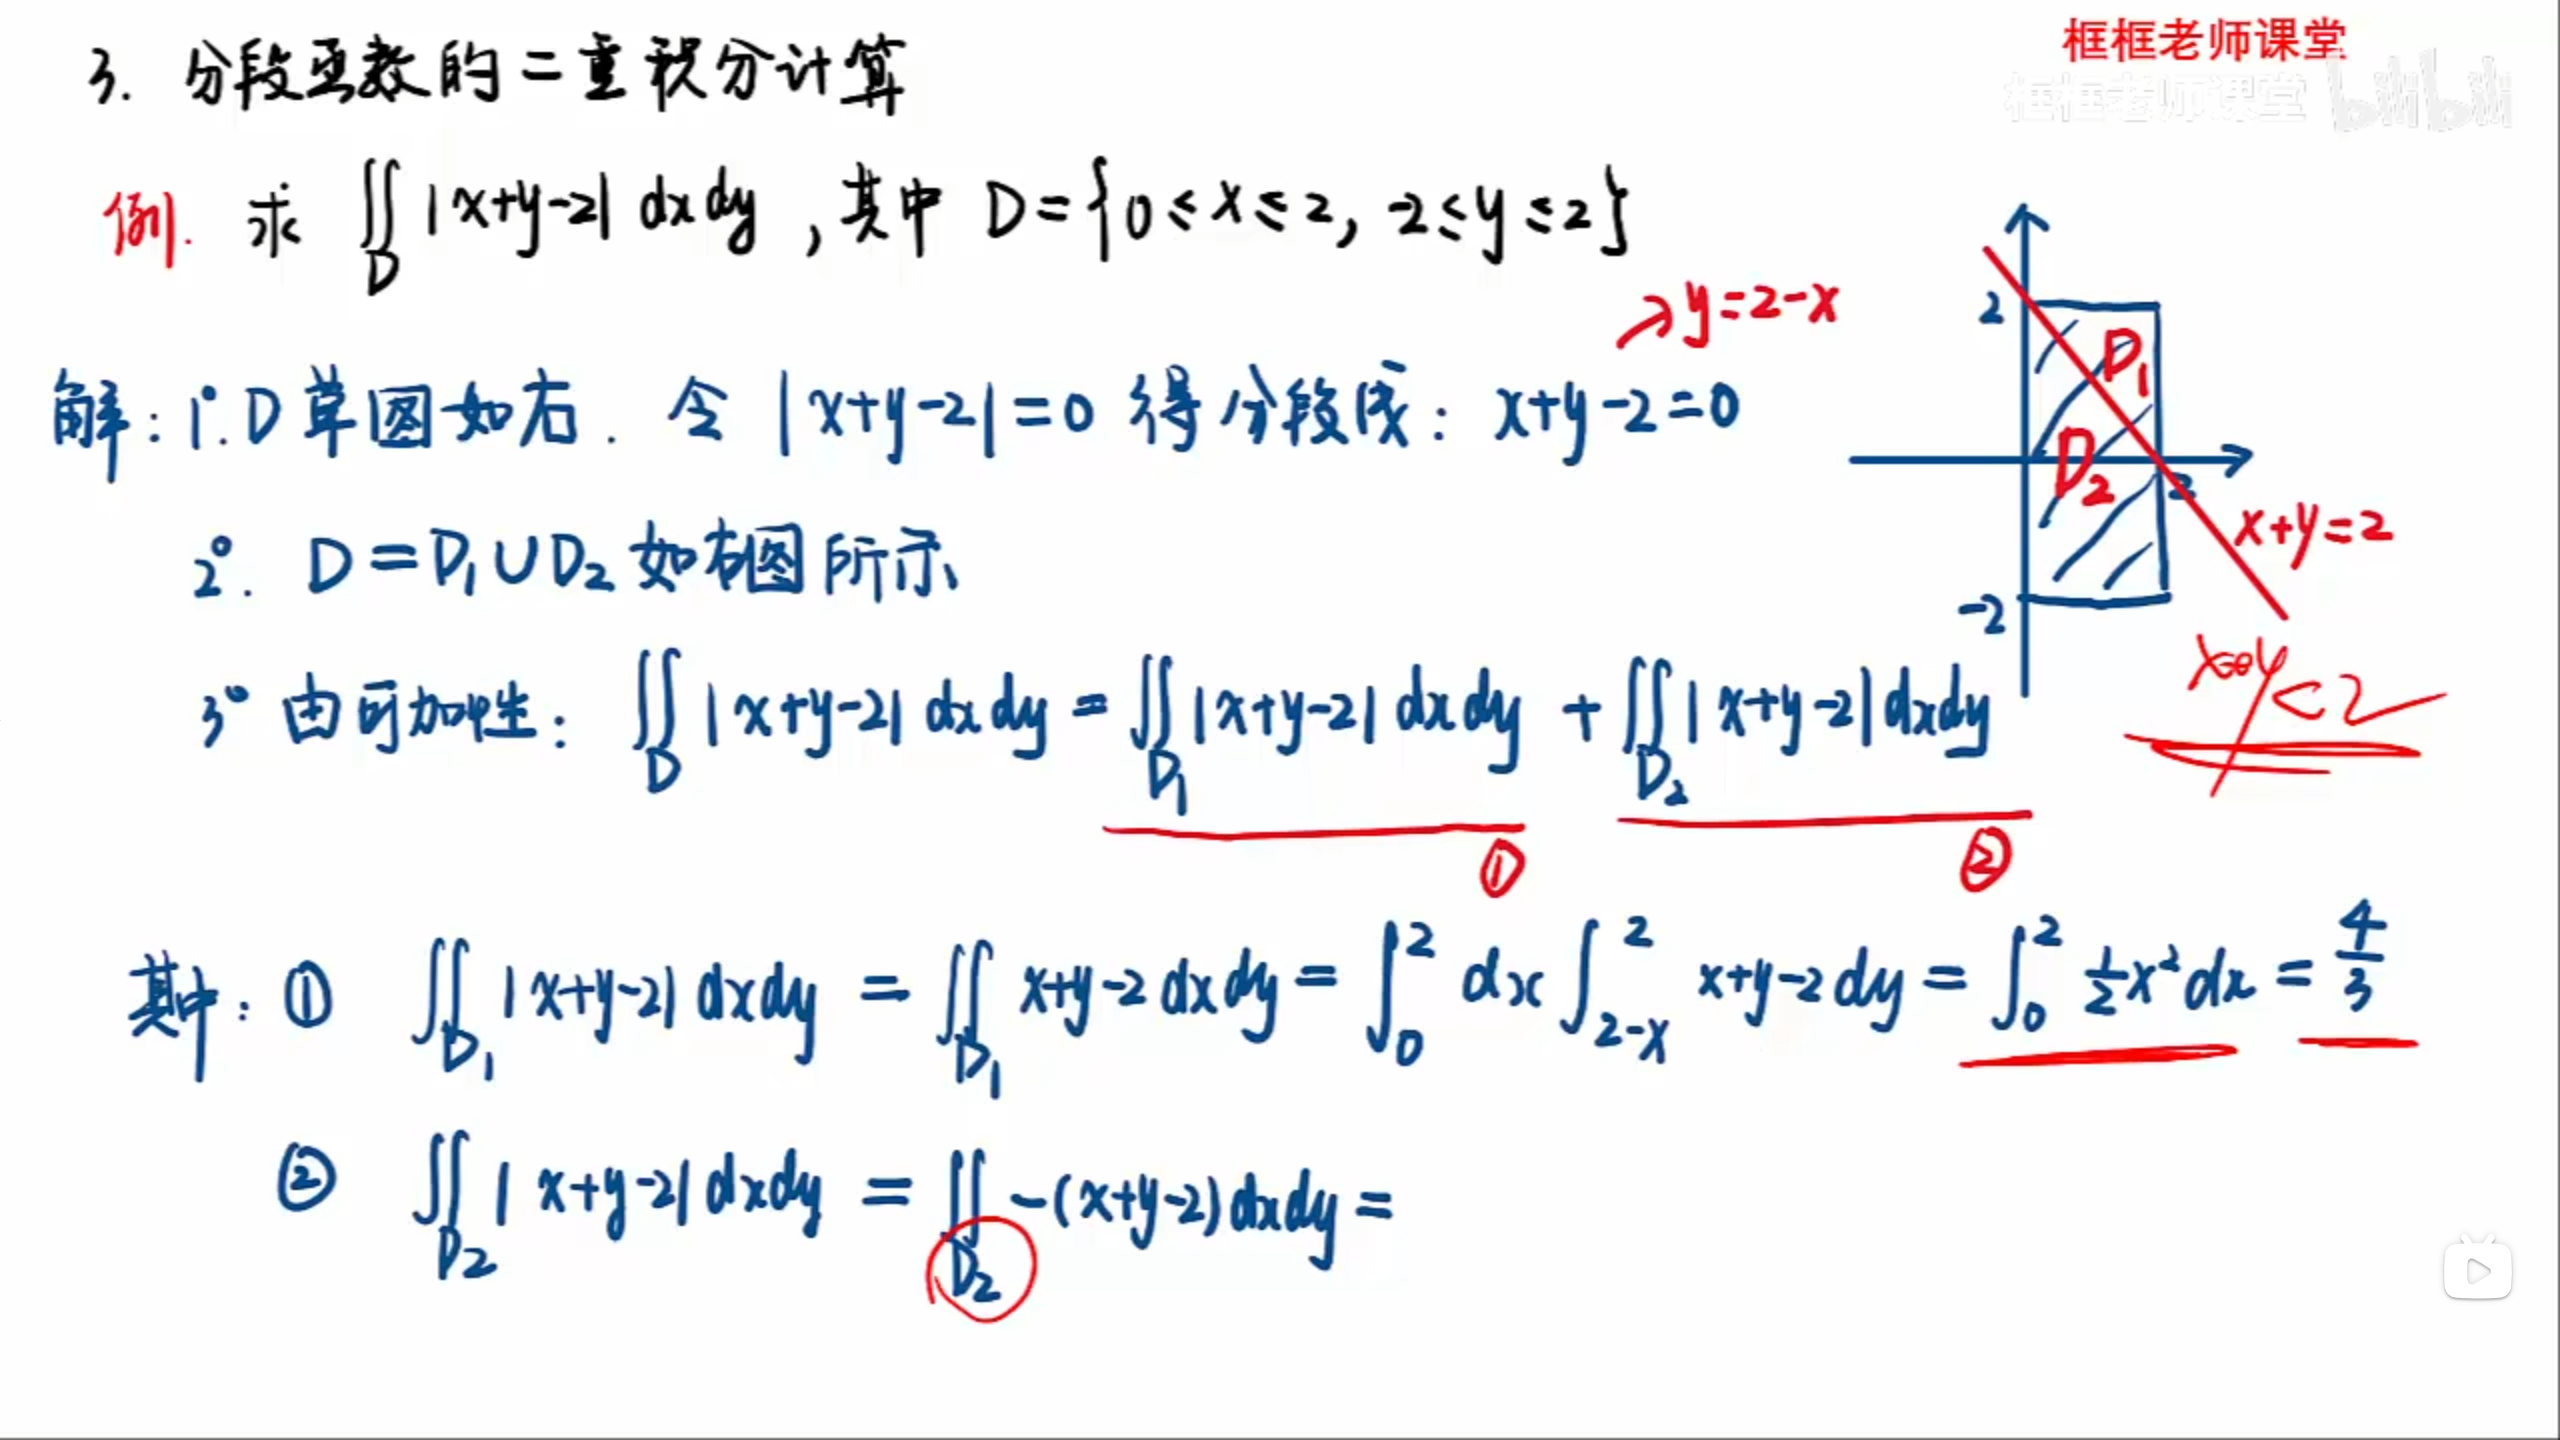 框框老师课堂
框框老师课堂 bilibili
3. 分段函数的二重积分计算
例. 求 ∬_D |x+y-2| dxdy , 其中 D={0≤x≤2, -2≤y≤2}
→y=2-x
解: 1°. D草图如右. 令 |x+y-2|=0 得分段线: x+y-2=0
2
D₁
D₂
2
x+y=2
-2
2°. D=D₁∪D₂ 如右图所示
3° 由可加性: ∬_D |x+y-2| dxdy = ∬_D₁ |x+y-2| dxdy + ∬_D₂ |x+y-2| dxdy
<2
① ②
其中: ① ∬_D₁ |x+y-2| dxdy = ∬_D₁ x+y-2 dxdy = ∫₀² dx ∫_{2-x}^{2} x+y-2 dy = ∫₀² ½x² dx = 4/3
② ∬_D₂ |x+y-2| dxdy = ∬_D₂ -(x+y-2) dxdy =